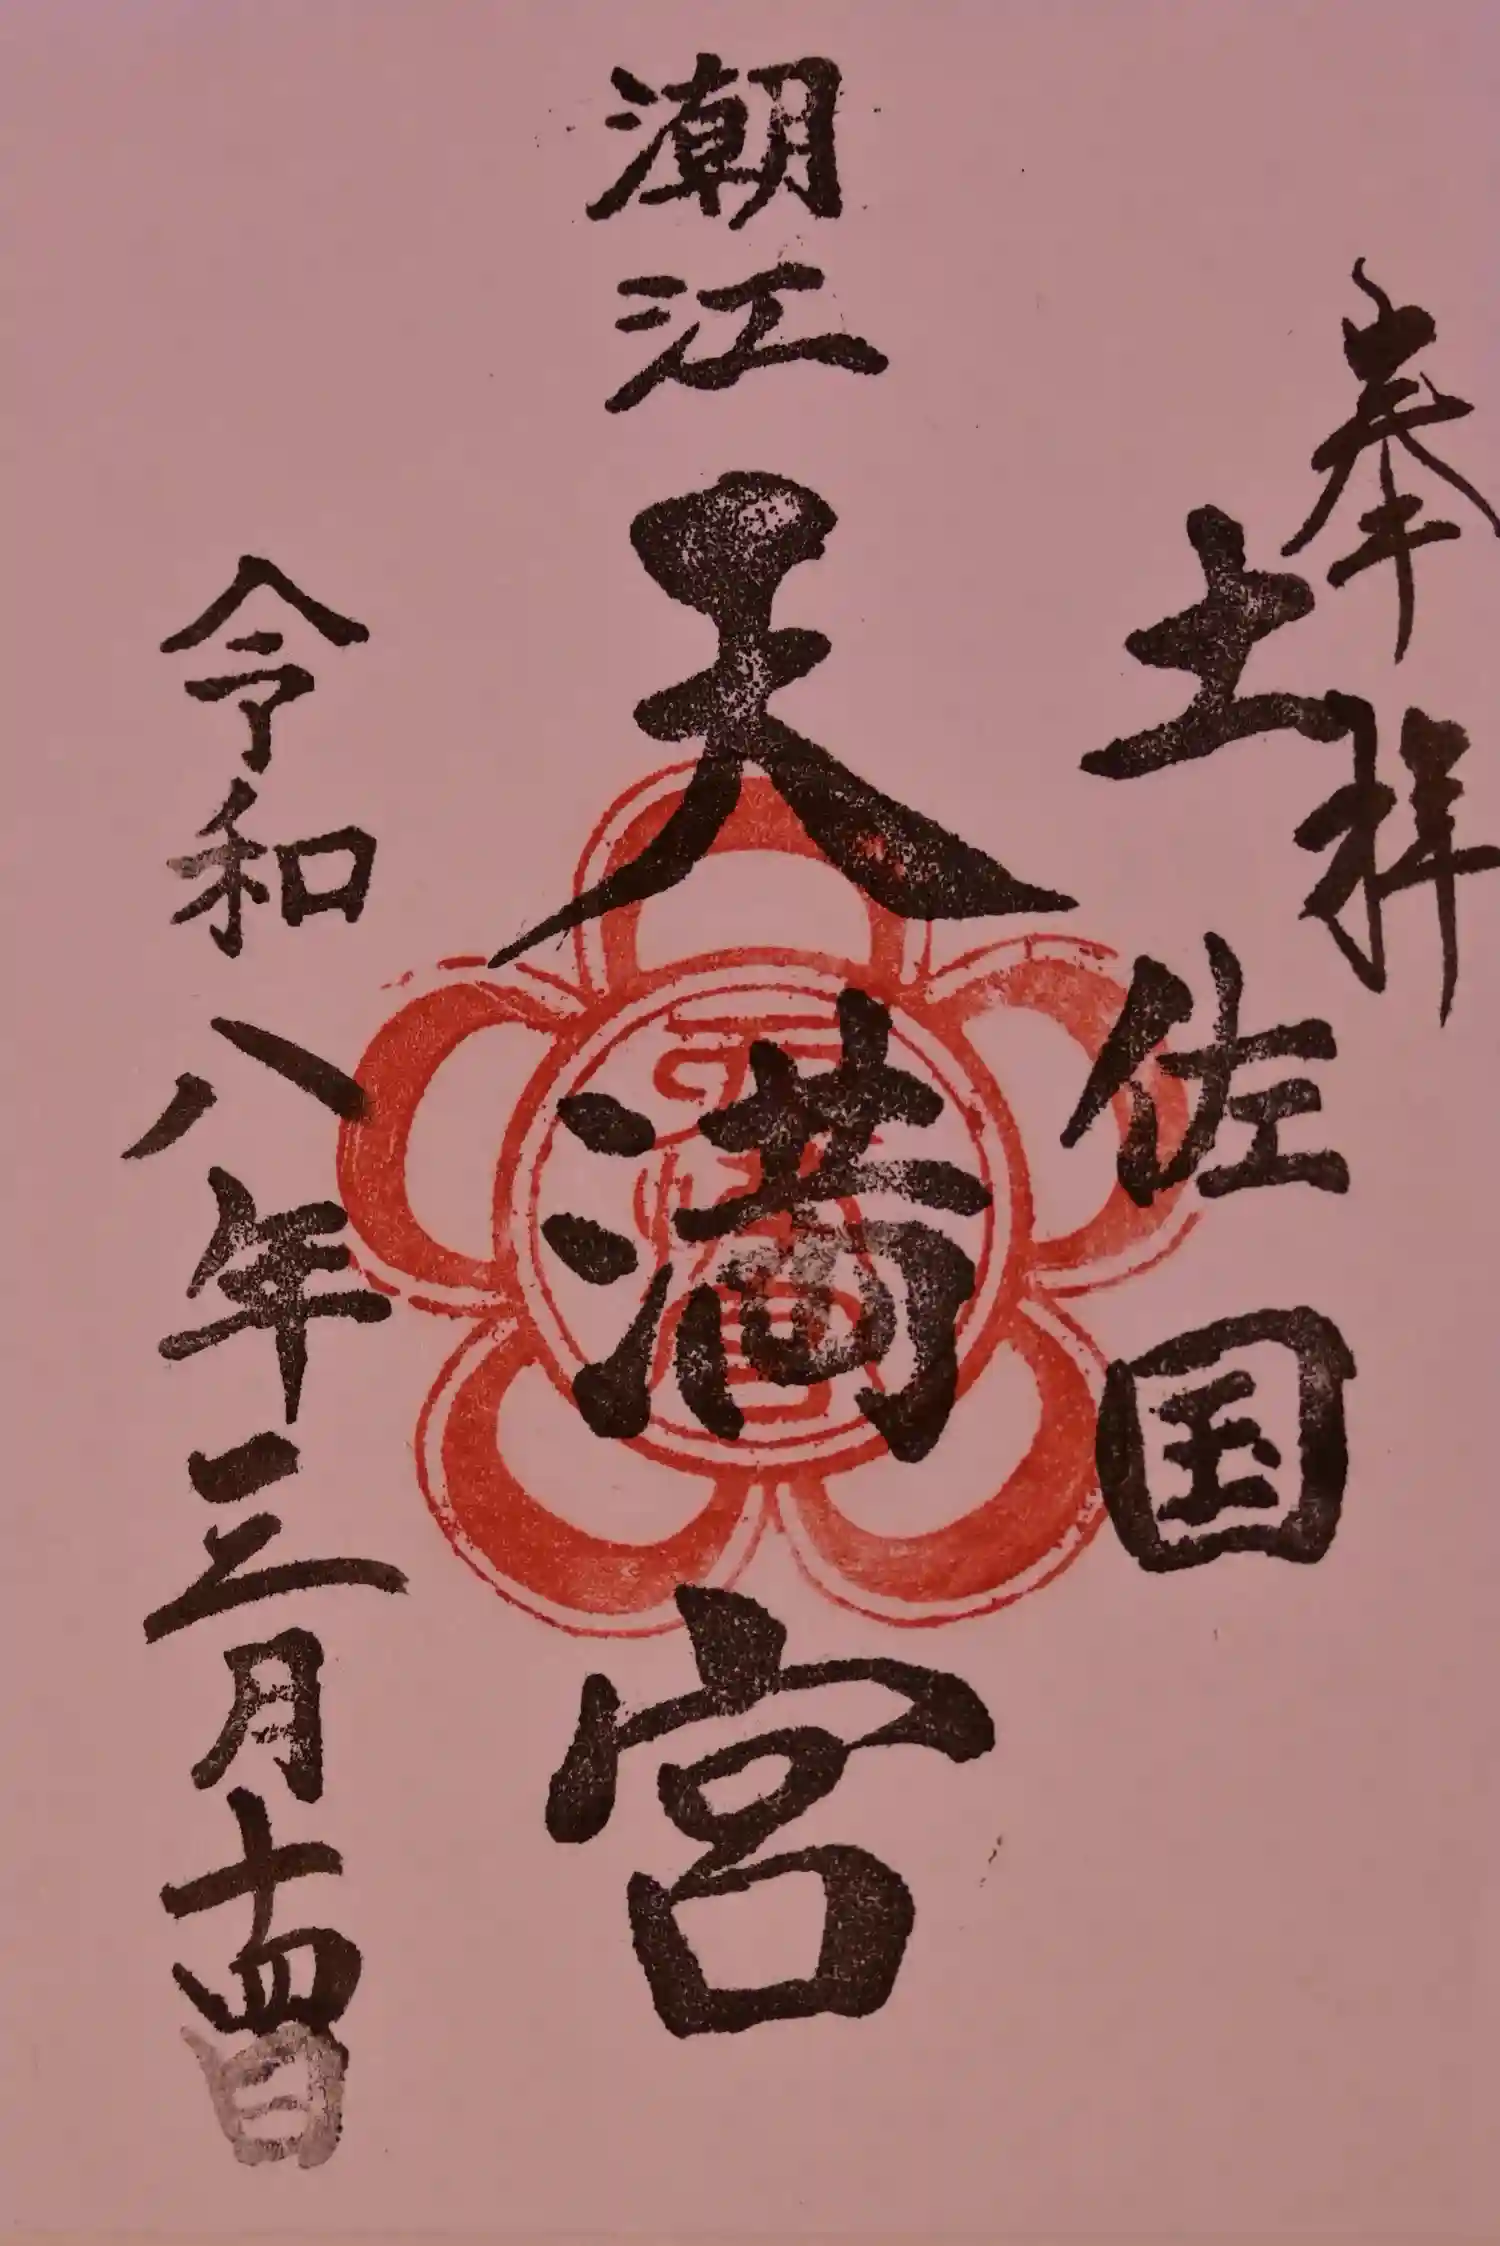 奉拝
土佐国
潮江天満宮
令和八年三月十四日